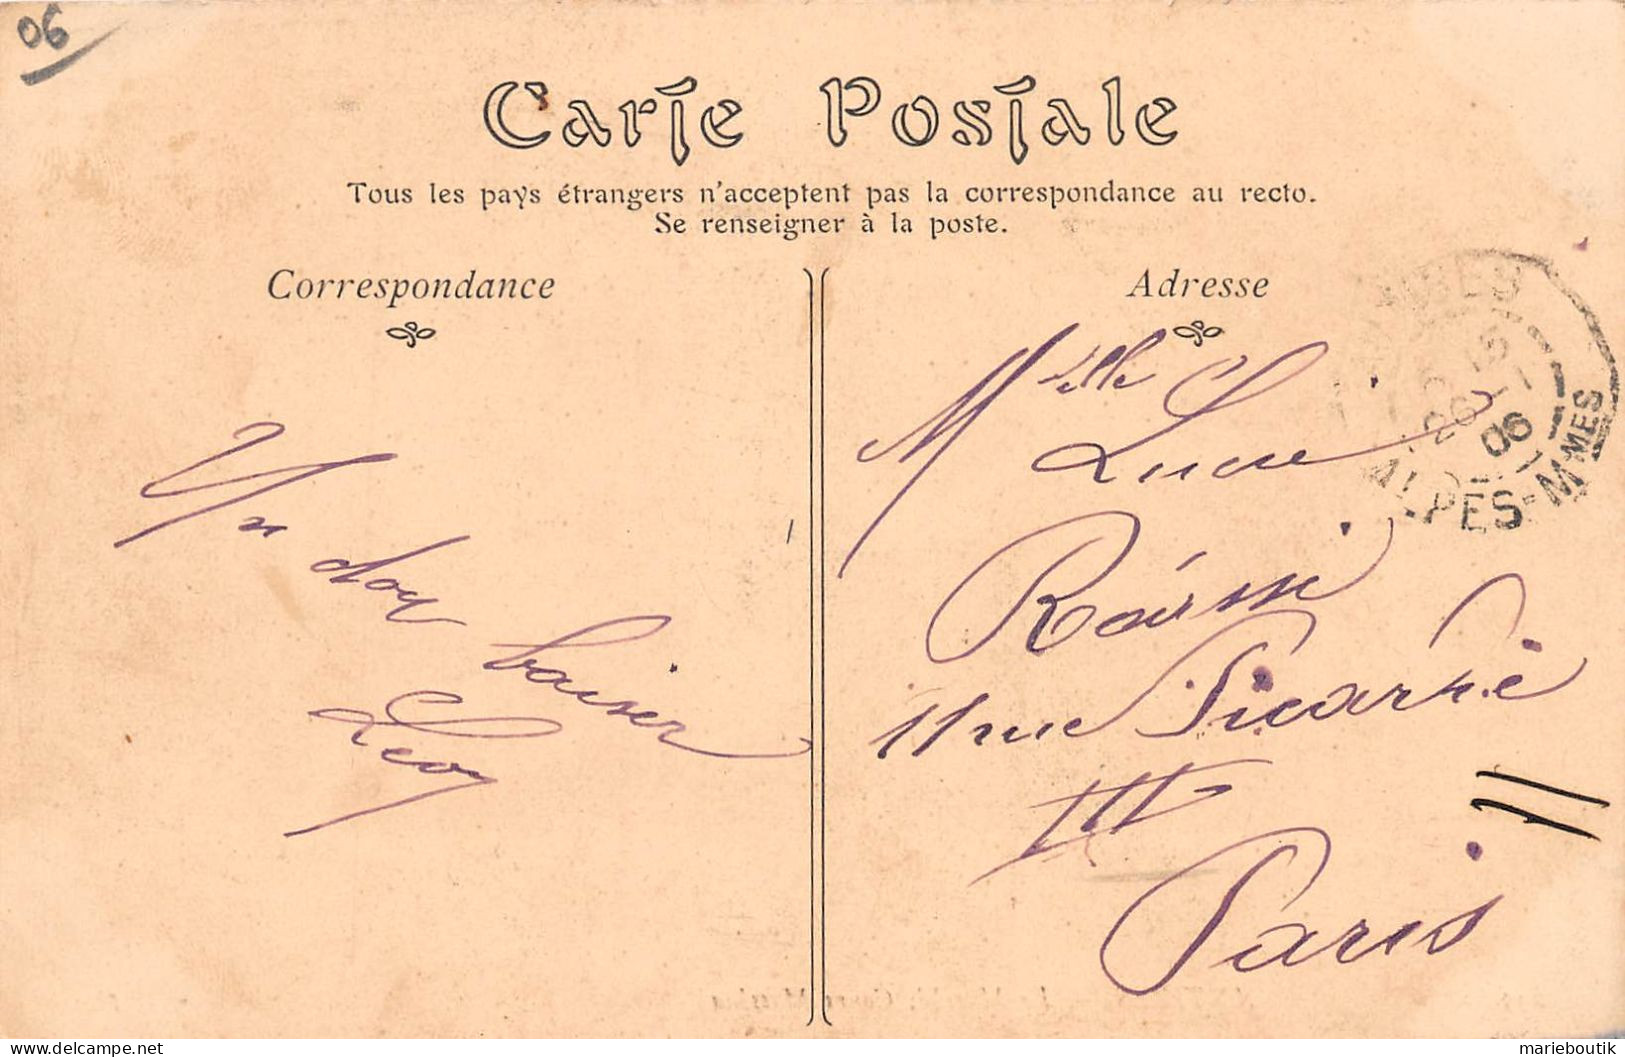 06
Carte Postale
Tous les pays étrangers n'acceptent pas la correspondance au recto.
Se renseigner à la poste.
Correspondance
Un doux baiser
Léon
Adresse
Melle Lucie
11 rue Picardie
III
Paris
06
ALPES-MMES
marieboutik